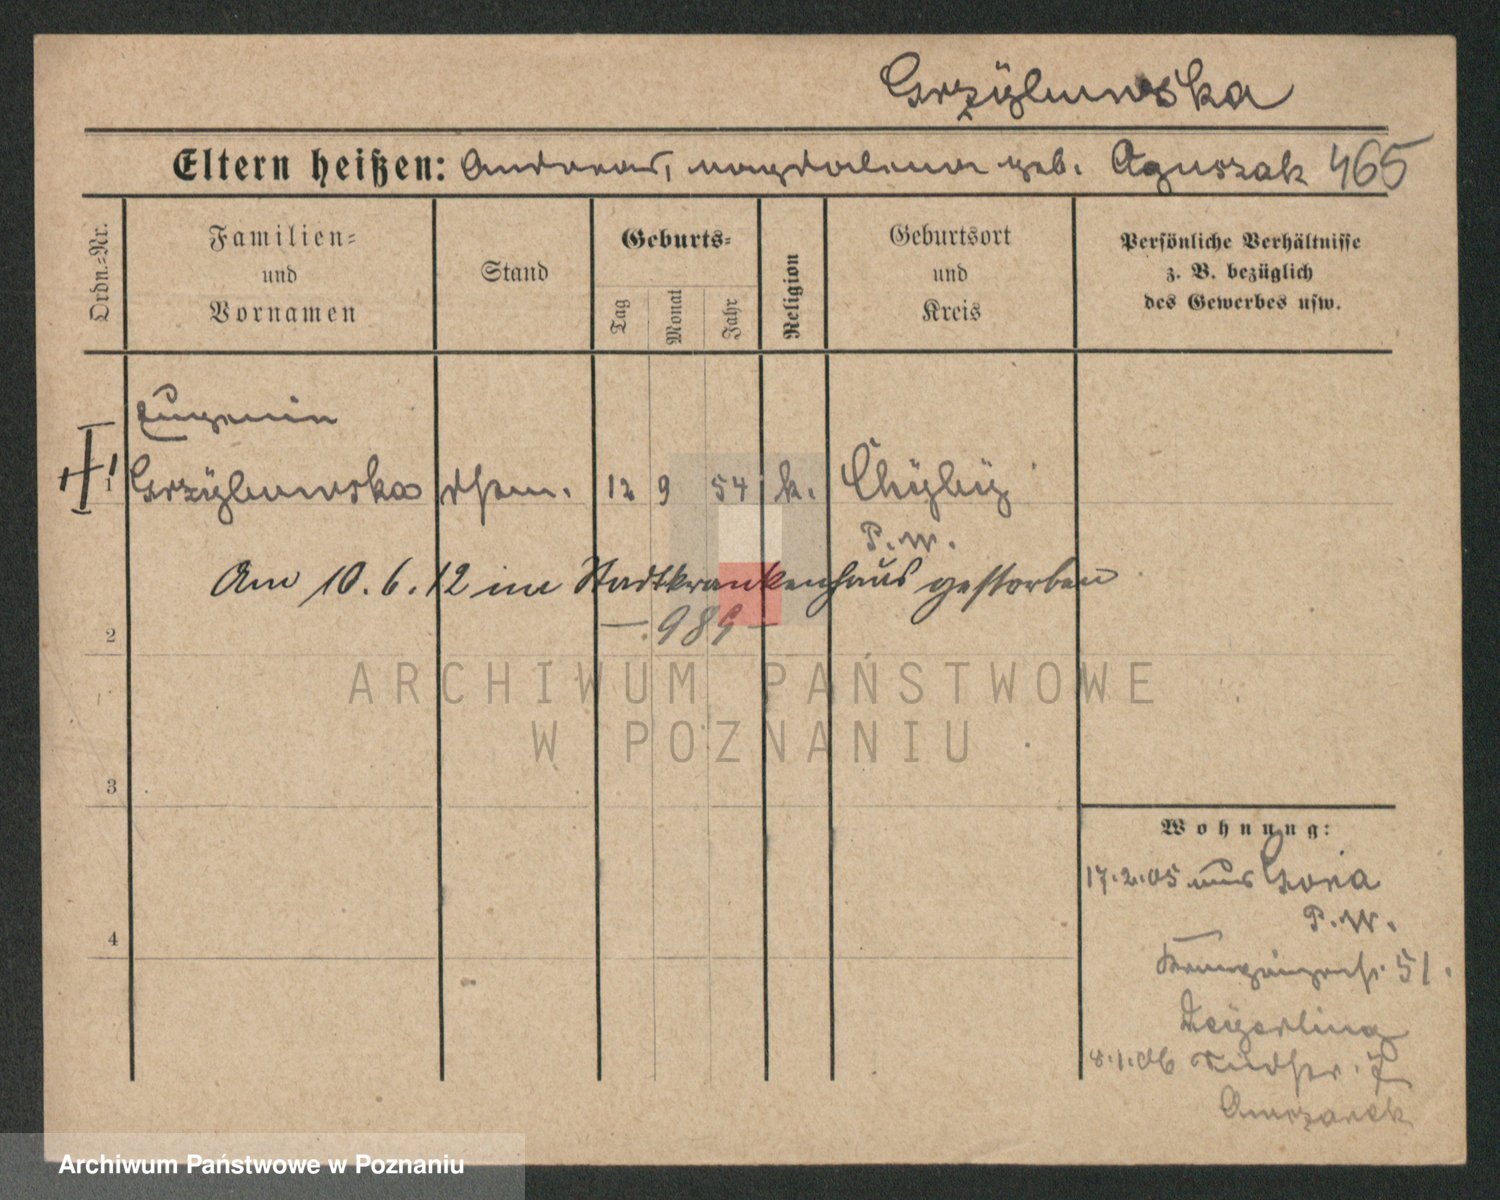 Grzybowska
Eltern heißen: Andreas, Magdalena geb. Aguszak 465
Ordn.-Nr.
Familien-
und
Vornamen
Stand
Geburts-
Tag
Monat
Jahr
Religion
Geburtsort
und
Kreis
Persönliche Verhältnisse
z. B. bezüglich
des Gewerbes usw.
Eugenia
1 Grzybowska 12 9 54 k. Chyby
P. W.
Am 10. 6. 12 im Stadtkrankenhaus gestorben
— 989 —
2
ARCHIWUM PAŃSTWOWE
W POZNANIU
3
Wohnung:
17.2.05 aus Gora
P. W.
4
51.
8.1.06
Archiwum Państwowe w Poznaniu